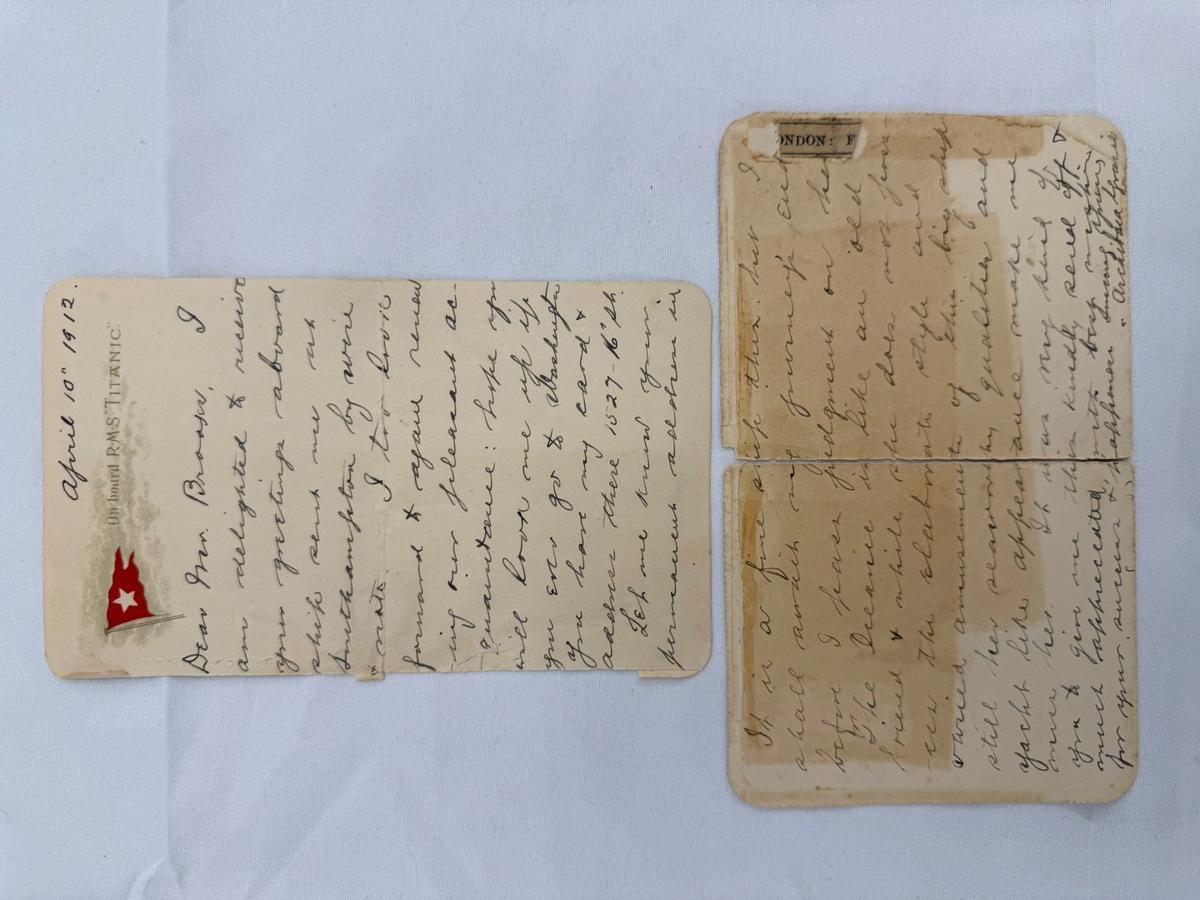 April 10" 1912.
On board R.M.S. "TITANIC"
Dear Mr. Brooks, I
am delighted to receive
your greetings aboard
ship sent me at
Southampton by wire
I too look
forward to again renew
ing our pleasant ac-
quaintance: hope you
will look me up if
you ever go to Washington
you have my card &
address there 1527-16" St.
Let me know your
permanent address in
LONDON: F
It is a fine ship this: but I
shall await my journey's end
before I pass judgment on her
for The Oceanic is like an old
friend & while she does not pos-
sess the elaborate style and
varied amusements of this big ship
still her seaworthy qualities and
yacht like appearance make me
miss her. It was very kind of
you to give me this kindly send off &
much appreciated. With best wishes
for your success & happiness Sincerely Yours,
"Archibald Gracie